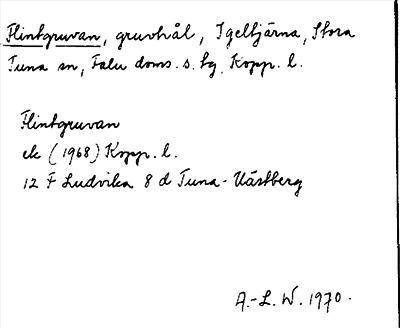 Flintgruvan, gruvhål, Igeltjärna, Stora
Tuna sn, Falu doms. s. tg. Kopp. l.
Flintgruvan
ek (1968) Kopp. l.
12 F Ludvika 8 d Tuna-Västberg
A.-L. W. 1970.